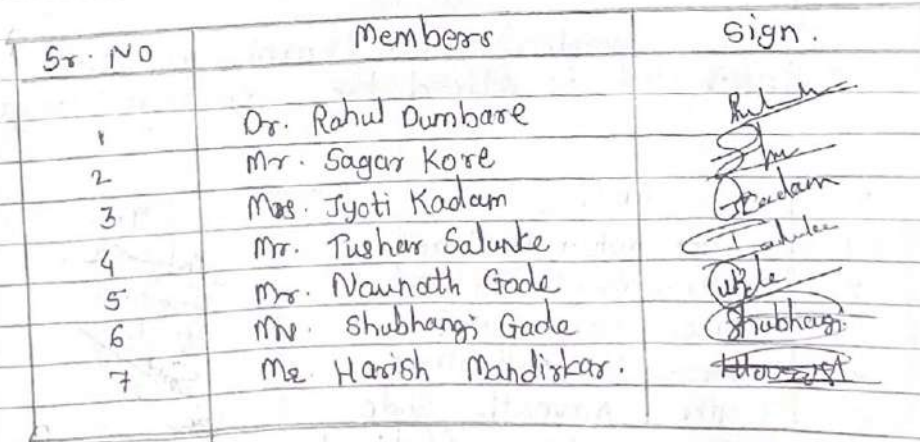 Sr. No Members Sign.
1 Dr. Rahul Dumbare
2 Mr. Sagar Kore
3 Mrs. Jyoti Kadam Kadam
4 Mr. Tushar Salunke
5 Mr. Navnath Gade
6 Mrs. Shubhangi Gade Shubhangi
7 Mr Harish Mandirkar.